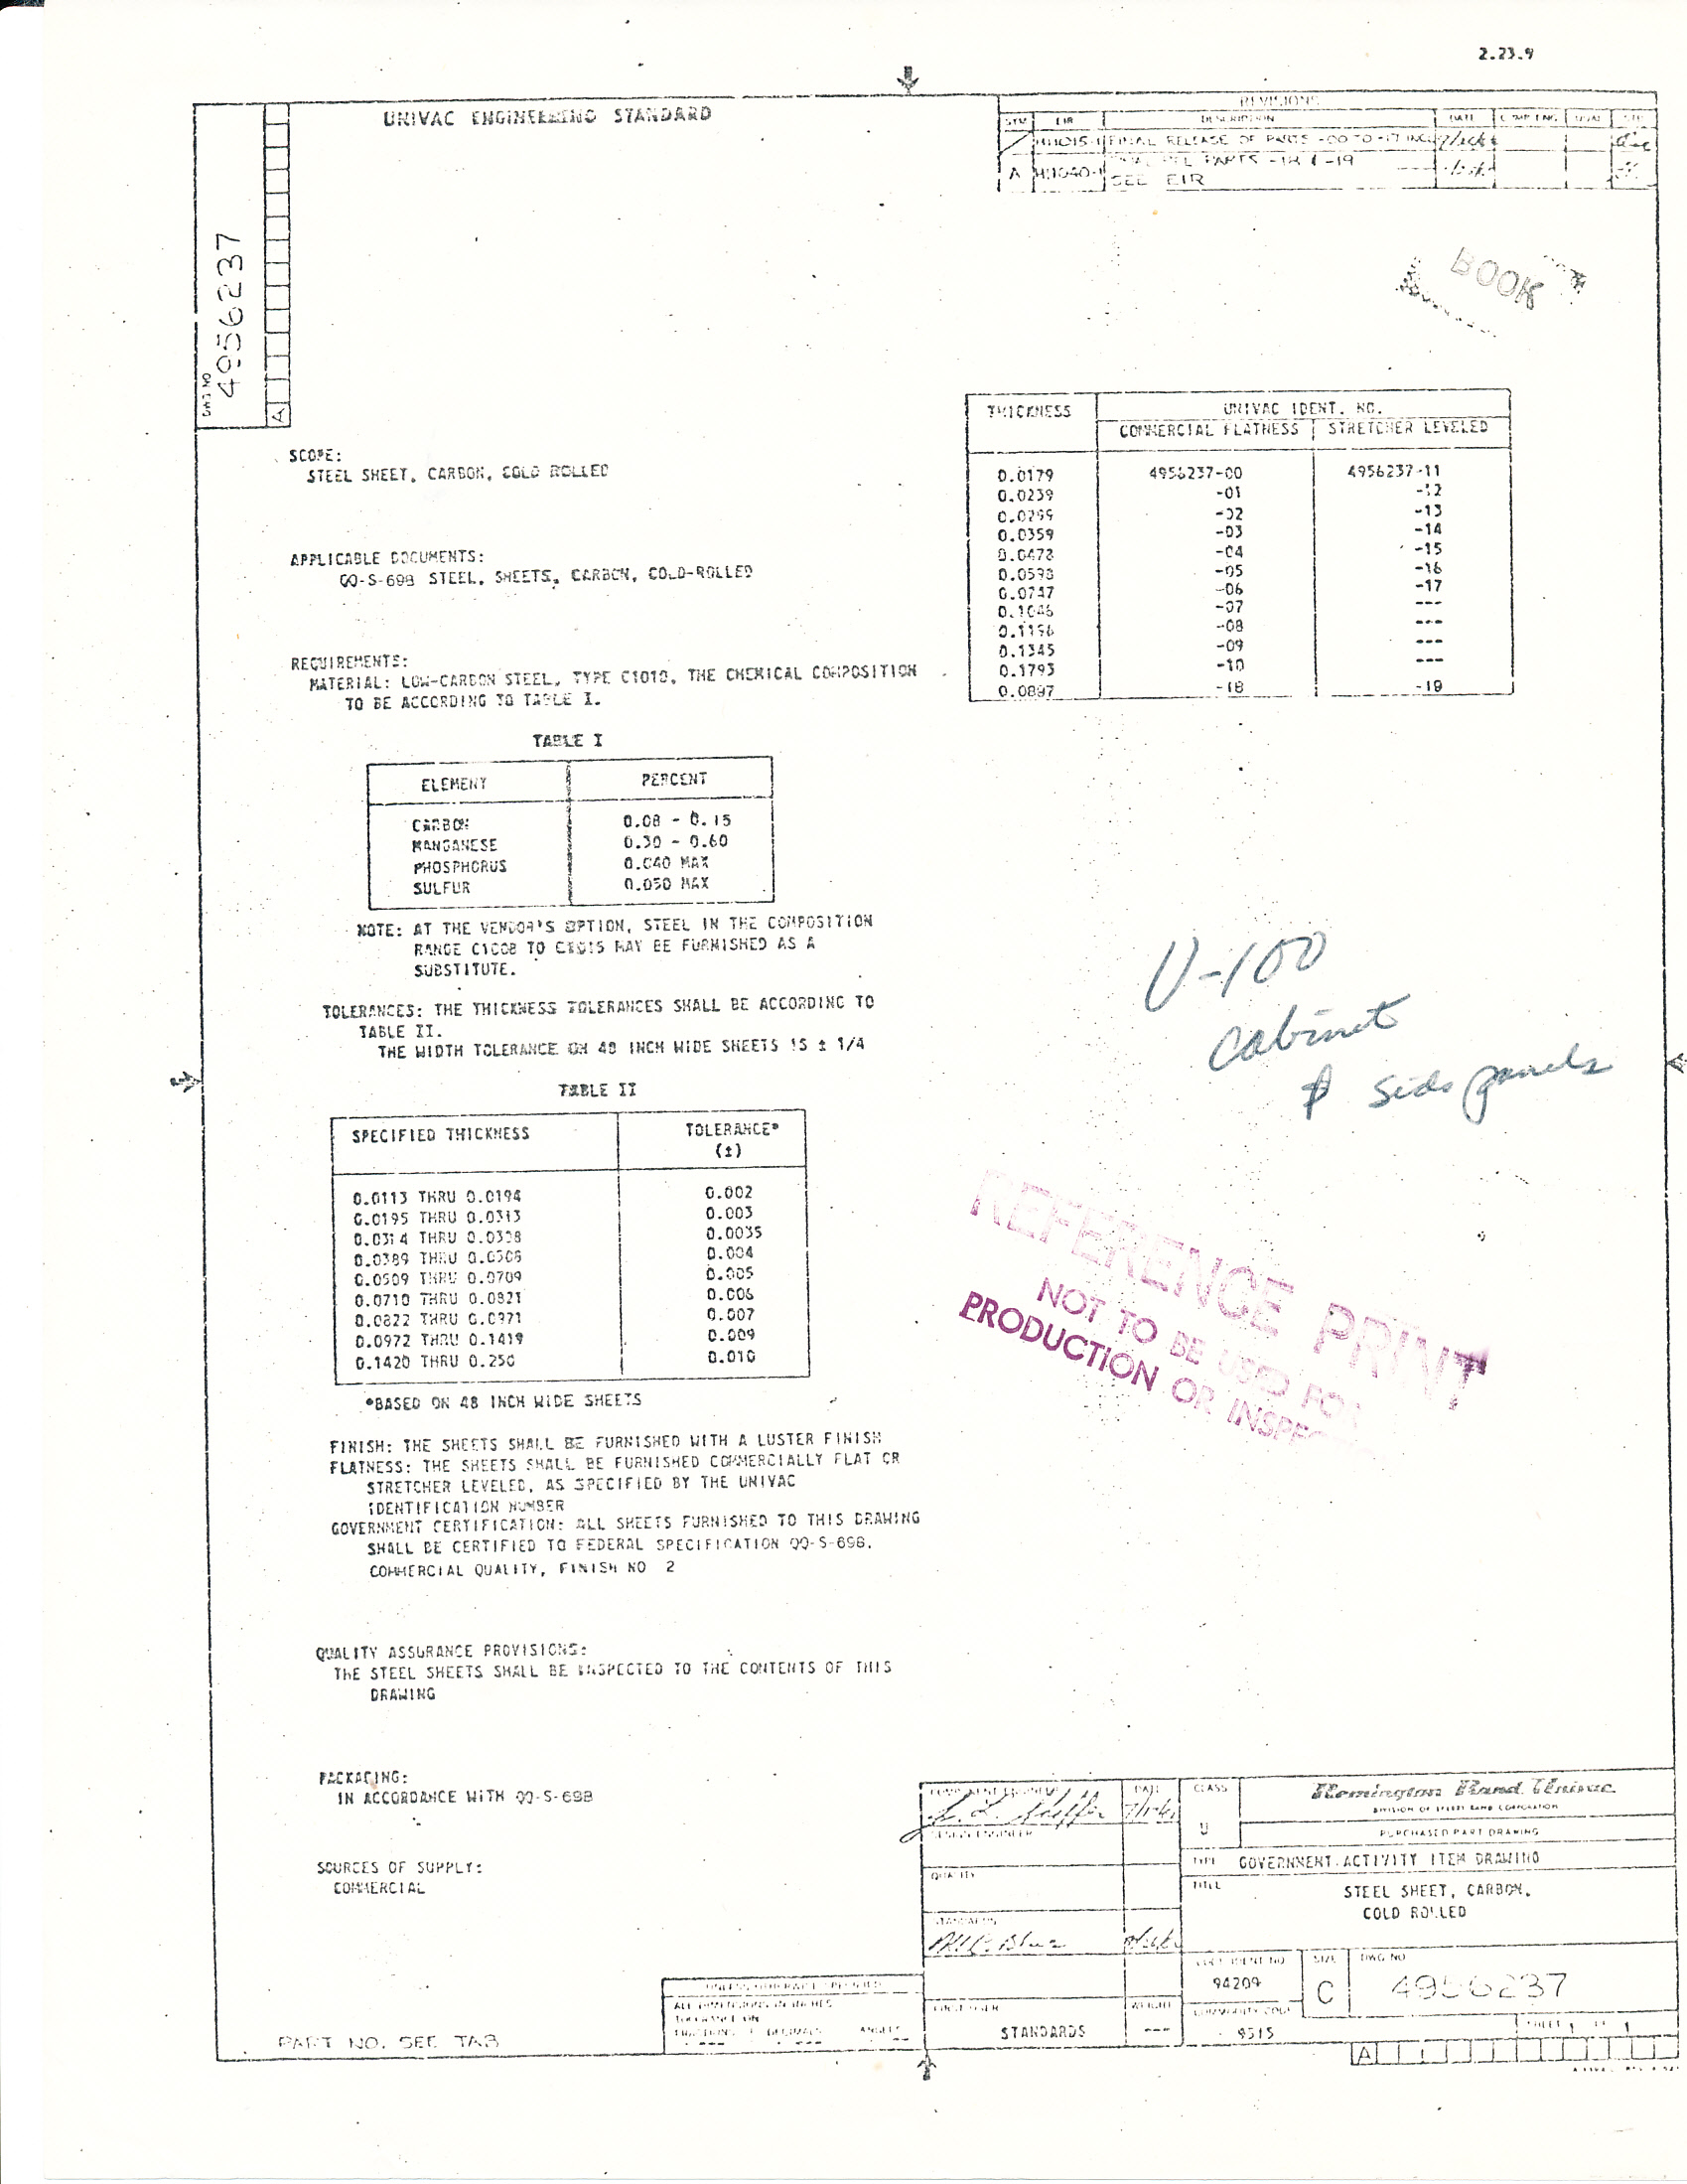 2.23.9
UNIVAC ENGINEERING STANDARD
REVISIONS
SYM EIR DESCRIPTION DATE COMP ENG QUAL STD
FINAL RELEASE OF PARTS -00 TO -17 INC
A PARTS -18 & -19
SEE EIR
DWG NO
4956237
A
BOOK
THICKNESS UNIVAC IDENT. NO.
COMMERCIAL FLATNESS STRETCHER LEVELED
0.0179 4956237-00 4956237-11
0.0239 -01 -12
0.0299 -02 -13
0.0359 -03 -14
0.0478 -04 -15
0.0598 -05 -16
0.0747 -06 -17
0.1046 -07 ---
0.1196 -08 ---
0.1345 -09 ---
0.1793 -10 ---
0.0897 -18 -19
SCOPE:
STEEL SHEET, CARBON, COLD ROLLED
APPLICABLE DOCUMENTS:
QQ-S-698 STEEL, SHEETS, CARBON, COLD-ROLLED
REQUIREMENTS:
MATERIAL: LOW-CARBON STEEL, TYPE C1010, THE CHEMICAL COMPOSITION
TO BE ACCORDING TO TABLE I.
TABLE I
ELEMENT PERCENT
CARBON 0.08 - 0.15
MANGANESE 0.30 - 0.60
PHOSPHORUS 0.040 MAX
SULFUR 0.050 MAX
NOTE: AT THE VENDOR'S OPTION, STEEL IN THE COMPOSITION
RANGE C1008 TO C1015 MAY BE FURNISHED AS A
SUBSTITUTE.
TOLERANCES: THE THICKNESS TOLERANCES SHALL BE ACCORDING TO
TABLE II.
THE WIDTH TOLERANCE ON 48 INCH WIDE SHEETS IS ± 1/4
TABLE II
SPECIFIED THICKNESS TOLERANCE*
(±)
0.0113 THRU 0.0194 0.002
0.0195 THRU 0.0313 0.003
0.0314 THRU 0.0388 0.0035
0.0389 THRU 0.0508 0.004
0.0509 THRU 0.0709 0.005
0.0710 THRU 0.0821 0.006
0.0822 THRU 0.0971 0.007
0.0972 THRU 0.1419 0.009
0.1420 THRU 0.250 0.010
*BASED ON 48 INCH WIDE SHEETS
U-100
cabinet
& side panels
REFERENCE PRINT
NOT TO BE USED FOR
PRODUCTION OR INSPEC
FINISH: THE SHEETS SHALL BE FURNISHED WITH A LUSTER FINISH
FLATNESS: THE SHEETS SHALL BE FURNISHED COMMERCIALLY FLAT OR
STRETCHER LEVELED, AS SPECIFIED BY THE UNIVAC
IDENTIFICATION NUMBER
GOVERNMENT CERTIFICATION: ALL SHEETS FURNISHED TO THIS DRAWING
SHALL BE CERTIFIED TO FEDERAL SPECIFICATION QQ-S-698.
COMMERCIAL QUALITY, FINISH NO 2
QUALITY ASSURANCE PROVISIONS:
THE STEEL SHEETS SHALL BE INSPECTED TO THE CONTENTS OF THIS
DRAWING
PACKAGING:
IN ACCORDANCE WITH QQ-S-698
SOURCES OF SUPPLY:
COMMERCIAL
PART NO. SEE TAB
UNLESS OTHERWISE SPECIFIED
ALL DIMENSIONS IN INCHES
TOLERANCE ON
FRACTIONS DECIMALS ANGLES
--- --- --
COMPONENT ENGINEER DATE
DESIGN ENGINEER
QUALITY
STANDARDS
FIRST USER WEIGHT
STANDARDS ---
CLASS
U
Remington Rand Univac
DIVISION OF SPERRY RAND CORPORATION
PURCHASED PART DRAWING
TYPE GOVERNMENT ACTIVITY ITEM DRAWING
TITLE
STEEL SHEET, CARBON,
COLD ROLLED
CODE IDENT NO SIZE DWG NO
94209 C 4956237
COMMODITY CODE
9515
SHEET 1 OF 1
A